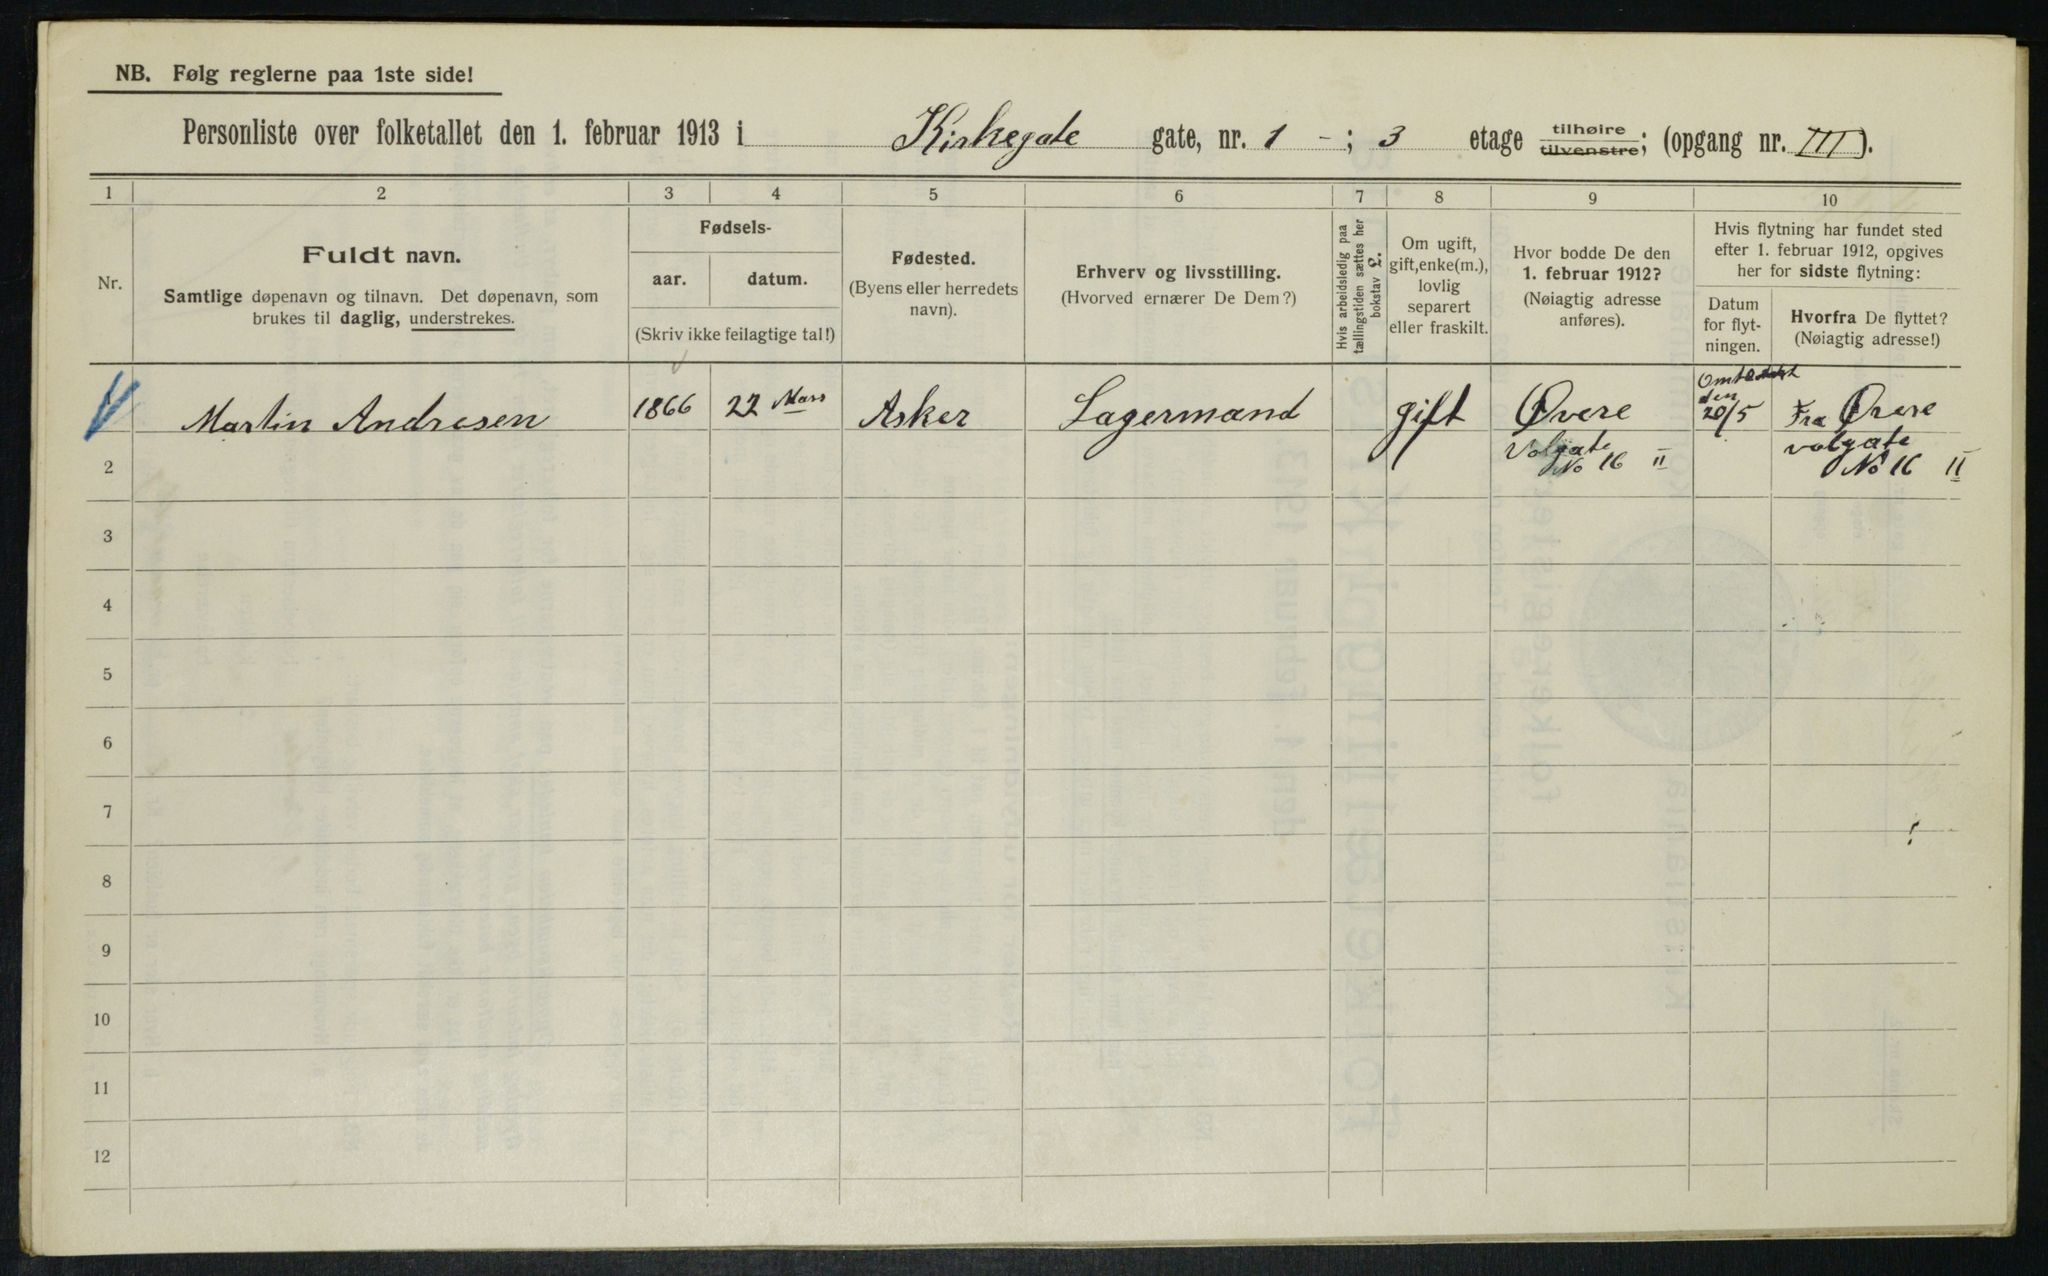 NB. Følg reglerne paa 1ste side!
Personliste over folketallet den 1. februar 1913 i Kirkegate gate, nr. 1 - ; 3 etage tilhøire tilvenstre; (opgang nr. III).
1 2 3 4 5 6 7 8 9 10
Nr.
Fuldt navn.
Samtlige døpenavn og tilnavn. Det døpenavn, som
brukes til daglig, understrekes.
Fødsels-
aar. datum.
(Skriv ikke feilagtige tal!)
Fødested.
(Byens eller herredets
navn).
Erhverv og livsstilling.
(Hvorved ernærer De Dem?)
Hvis arbeidsledig paa
tællingstiden sættes her
bokstav L.
Om ugift,
gift, enke(m.),
lovlig
separert
eller fraskilt.
Hvor bodde De den
1. februar 1912?
(Nøiagtig adresse
anføres).
Hvis flytning har fundet sted
efter 1. februar 1912, opgives
her for sidste flytning:
Datum
for flyt-
ningen.
Hvorfra De flyttet?
(Nøiagtig adresse!)
Martin Andresen 1866 22 Mars Asker Lagermand gift Øvere
Volgate
No 16 II
den
20/5
Fra Øvere
volgate
No 16 II
2
3
4
5
6
7
8
9
10
11
12